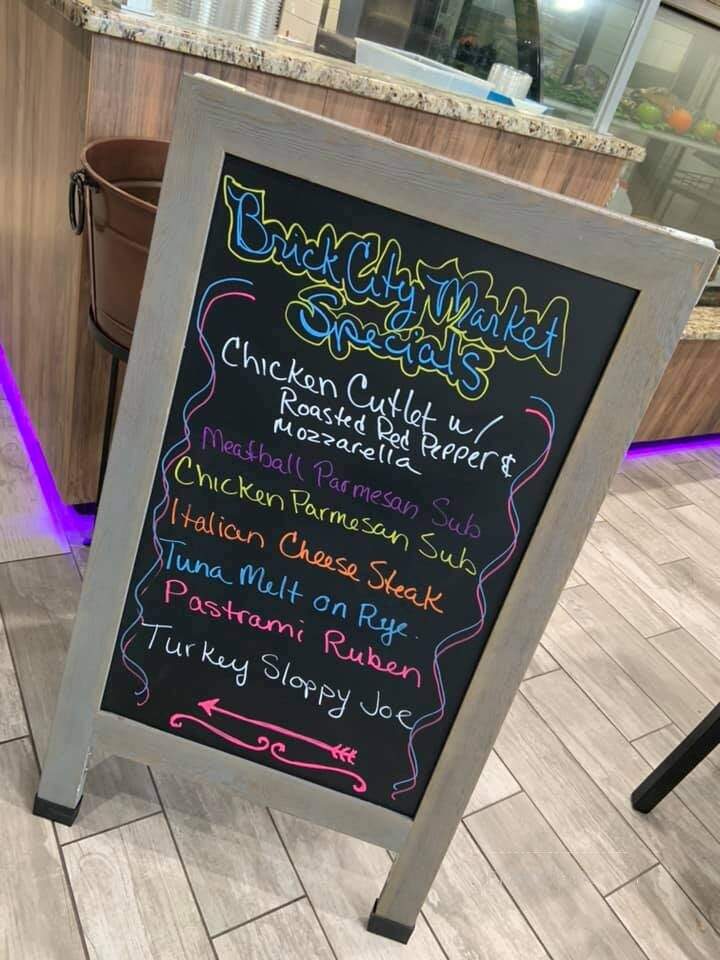 Brick City Market
Specials
Chicken Cutlet w/
Roasted Red Pepper &
Mozzarella
Meatball Parmesan Sub
Chicken Parmesan Sub
Italian Cheese Steak
Tuna Melt on Rye.
Pastrami Ruben
Turkey Sloppy Joe